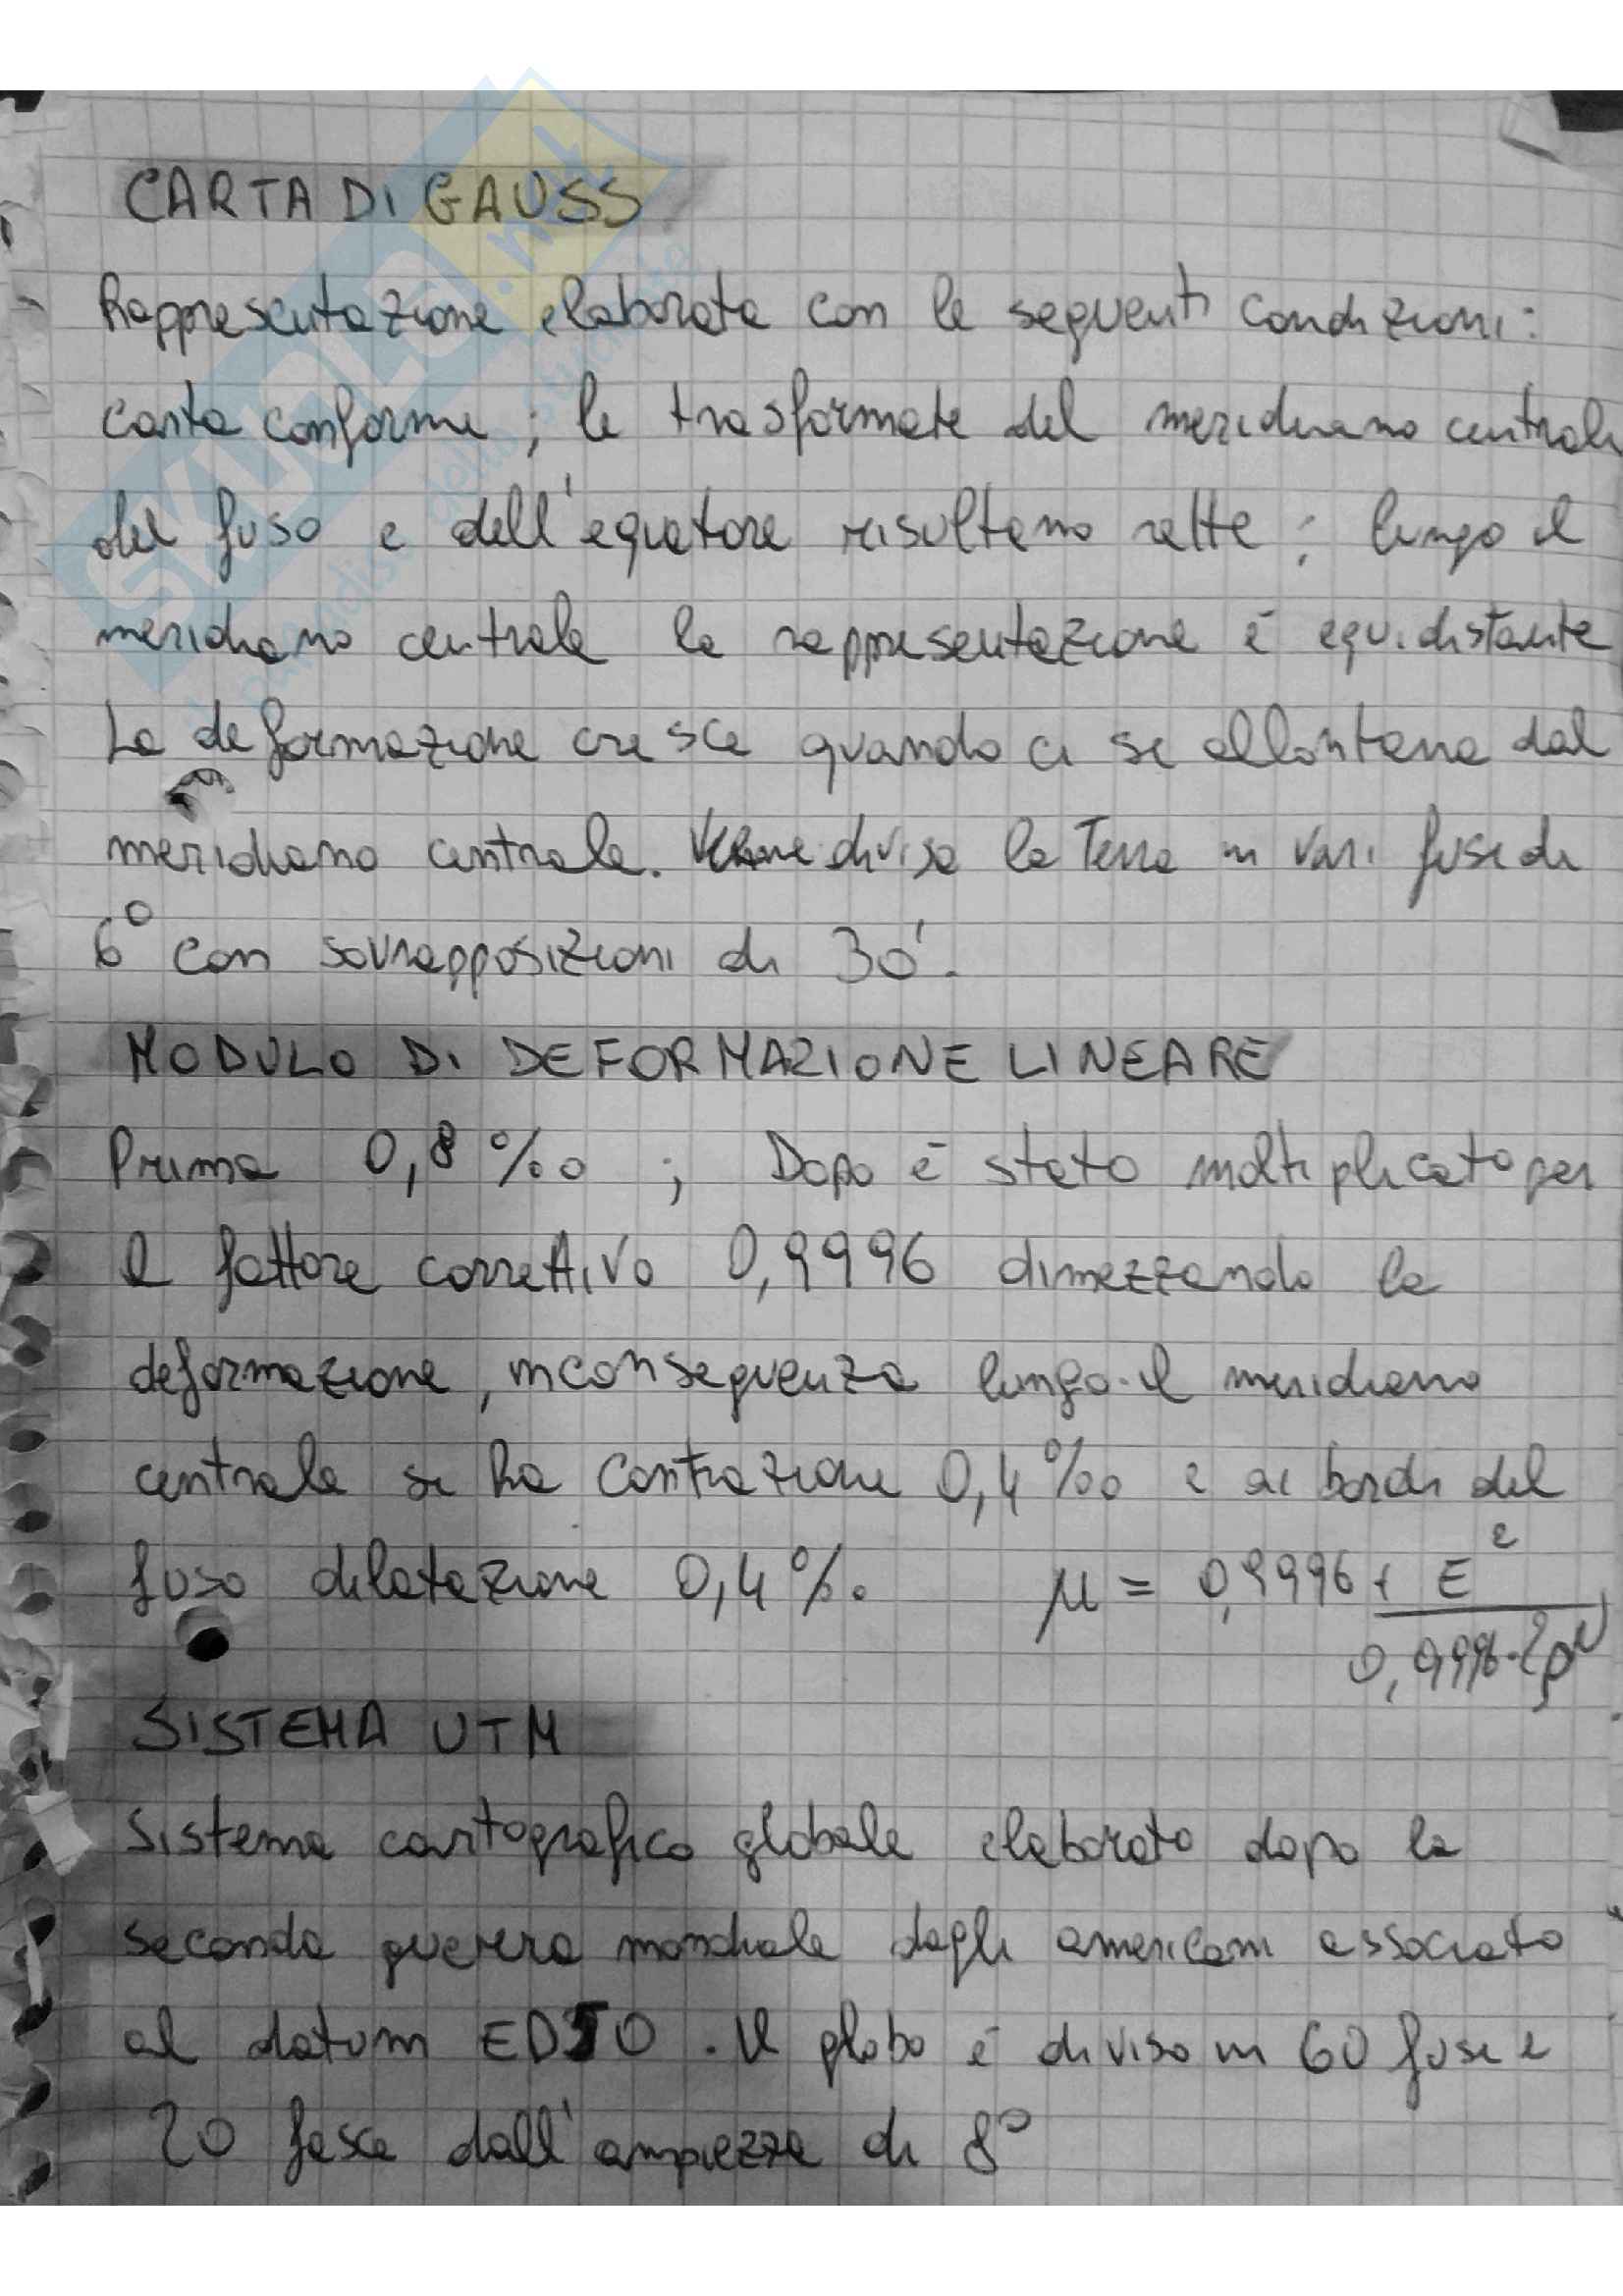 CARTA DI GAUSS
Rappresentazione elaborata con le seguenti condizioni:
carta conforme; le trasformate del meridiano centrale
del fuso e dell'equatore risultano rette; lungo il
meridiano centrale la rappresentazione è equidistante
La deformazione cresce quando ci si allontana dal
meridiano centrale. Viene divisa la Terra in vari fusi di
6° con sovrapposizioni di 30'.
MODULO DI DEFORMAZIONE LINEARE
Prima 0,8 ‰ ; Dopo è stato moltiplicato per
il fattore correttivo 0,9996 dimezzando la
deformazione, in conseguenza lungo il meridiano
centrale si ha contrazione 0,4 ‰ e ai bordi del
fuso dilatazione 0,4 ‰ μ = 0,9996 + E²
0,9996·2ρN
SISTEMA UTM
Sistema cartografico globale elaborato dopo la
seconda guerra mondiale dagli americani associato
al datum ED50. Il globo è diviso in 60 fusi e
20 fasce dall'ampiezza di 8°
SKUOLA.net
il paradiso dello studente